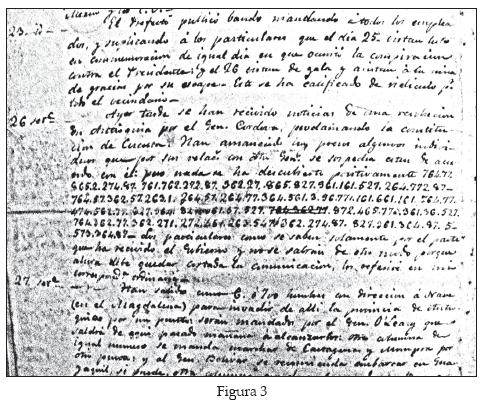 23. id —
El Prefecto publicó bando mandando á todos los emplea
dos, y suplicando á los particulares que el dia 25 vistan luto
en conmemoracion de igual dia en que ocurrió la conspiracion
contra el Presidente: y el 26 vistan de gala y asistan á la misa
de gracias por su escape. Esto se ha calificado de ridiculo por
todo el vecindario —
26 set.e —
Ayer tarde se han recivido noticias de una revolucion
en Antioquia por el Gen. Cordova, proclamando la constitu
cion de Cucuta. Han amanecido hoy presos algunos indivi
duos que por sus relac.s con dho Gen.l se sospecha esten de acu
erdo con él: pero nada se ha descubierto positivamente 764.77.
865.2.274.87. 761.762.372.87. 362.27.865.827.361.161.527.264.772.87—
764.57.362.57.263.1. 264.57.264.77.364.561.3.96.774.161.661.101.764.77—
872.465.77.361.36.527.
764.362.77.362.271.272.461.263.547
362.274.87. 827.261.364.87.5—
573.364.87— Los particulares como se saben solamente por el parte
que ha recivido el Gobierno y no se sabrán de otro modo porque
ahora debe quedar cortada la comunicacion, los refiero en mi
correspond.a ordinaria —
27 set.e —
Han salido como C. ó 700 hombres con direccion á Nare
(en el Magdalena) para invadir de alli la provincia de Antio
quia por un punto: serán mandados por el Gen. O'Leary que
saldrá de aqui pasado mañana á alcanzarlos: otra columna de
igual numero se manda marchar de Cartagena y Mompox por
otro punto; y el Gen. Bolivar se recomienda embarcar en Gua
yaquil, si puede, otra columna
Figura 3